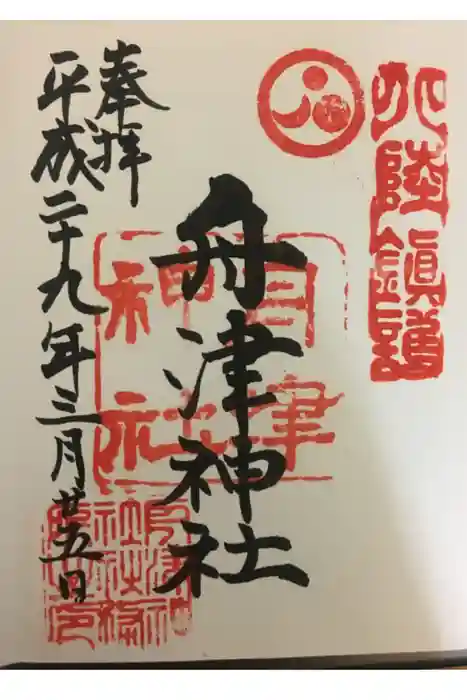 北陸鎮護
舟津神社
舟津
神社
奉拝
平成二十九年三月廿五日